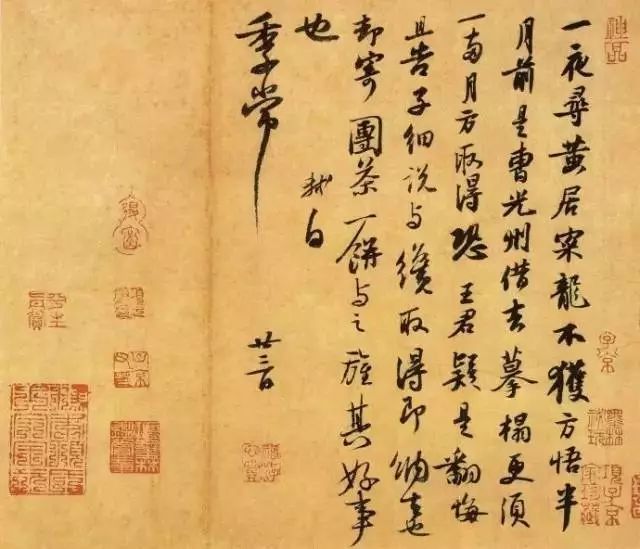 一夜尋黃居寀龍不獲方悟半
月前是曹光州借去摹榻更須
一兩月方取得恐王君疑是翻悔
且告子細說與纔取得即納去也
却寄團茶一餅與之旌其好事
也
軾白
季常
廿三日
子京